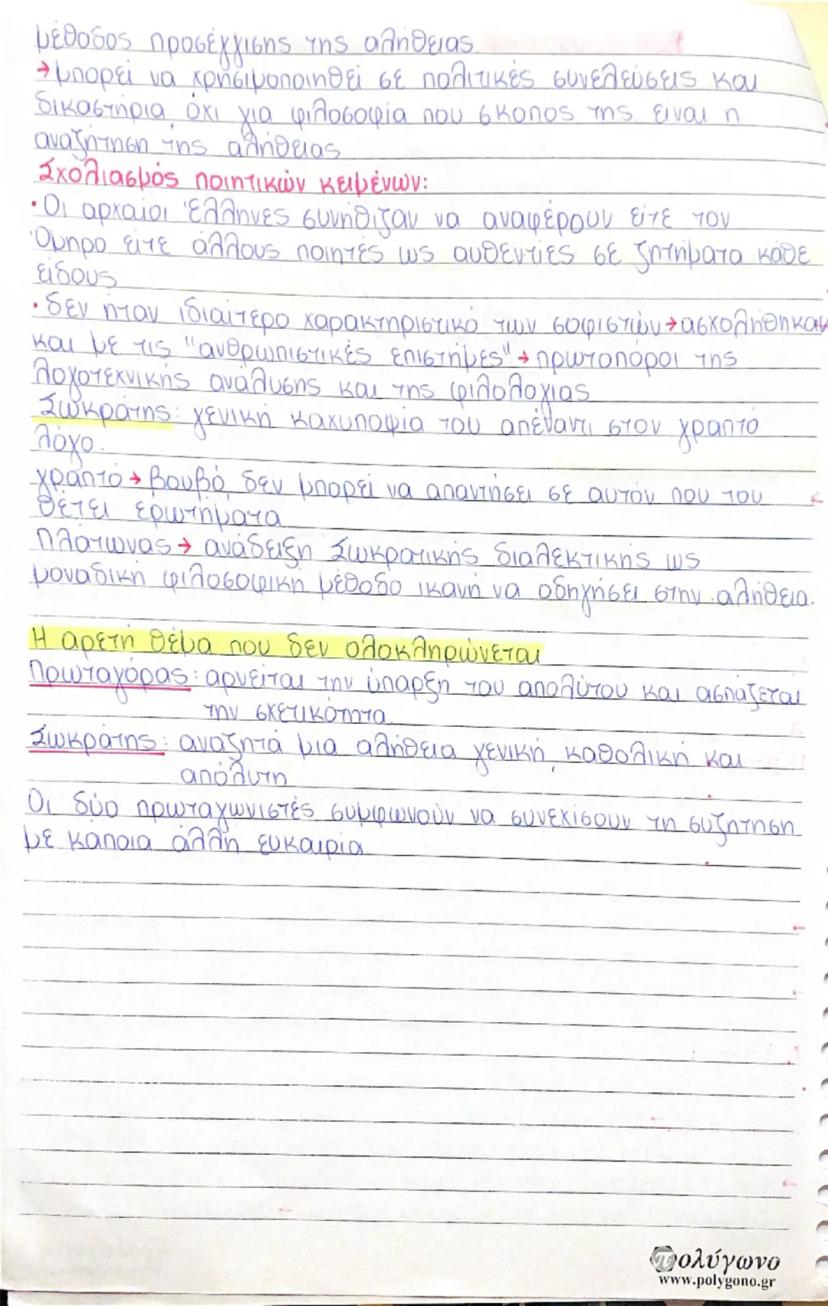 μέθοδος προσέγγισης της αλήθειας.
→μπορεί να χρησιμοποιηθεί σε πολιτικές συνελεύσεις και
δικαστήρια όχι για φιλοσοφία που σκοπος της ειναι η
αναζήτηση της αλήθειας
Σχολιασμός ποιητικών κειμένων:
•Οι αρχαίοι Έλληνες συνήθιζαν να αναφέρουν είτε τον
Όμηρο είτε άλλους ποιητές ως αυθεντίες σε ζητήματα κάθε
είδους
•δεν ήταν ιδιαίτερο χαρακτηριστικό των σοφιστών→ασχολήθηκαν
και με τις "ανθρωπιστικές επιστήμες"→πρωτοπόροι της
λογοτεχνικής ανάλυσης και της φιλολογίας
Σωκράτης: γενική καχυποψία του απέναντι στον γραπτό
λόγο.
γραπτό→βουβό, δεν μπορεί να απαντήσει σε αυτόν που του
θέτει ερωτήματα
Πλάτωνας→ ανάδειξη Σωκρατικής διαλεκτικής ως
μοναδική φιλοσοφική μέθοδο ικανή να οδηγήσει στην αλήθεια.
Η αρετή θέμα που δεν ολοκληρώνεται
Πρωταγόρας: αρνείται την ύπαρξη του απολύτου και ασπάζεται
την σχετικότητα
Σωκράτης: αναζητά μια αλήθεια γενική, καθολική και
απόλυτη
Οι δύο πρωταγωνιστές συμφωνούν να συνεχίσουν τη συζήτηση
με κάποια άλλη ευκαιρία
πολύγωνο
www.polygono.gr